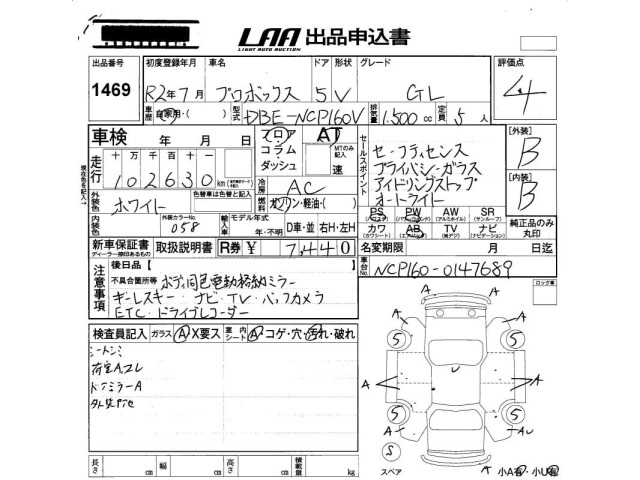 LAA 出品申込書
LIGHT AUTO AUCTION
出品番号 初度登録年月 車名 ドア 形状 グレード 評価点
1469 R2年7月 プロボックス 5 V GL 4
車歴 自家用・( ) 型式 DBE-NCP160V 排気量 1,500 cc 定員 5 人
車検 年 月 日 フロア・コラム・ダッシュ AT MTのみ記入 速
走行 十万千百十 102630 km
現在色を記入
外装色 ホワイト 色替車は色替と記入
冷房 AC
燃料 ガソリン・軽油・( )
内装色 外装カラーNo. 058 輸入車 モデル年式 年・不明 D車・並 右H・左H
新車保証書 取扱説明書 R券 ¥ 7,440
ディーラー捺印あるもの
セールスポイント
セーフティセンス
プライバシーガラス
アイドリングストップ
オートライト
PS PW AW SR
(パワステ) (パワーウィンドウ) (アルミホイル) (サンルーフ)
カワ AB TV ナビ
(カワシート) (エアバッグ) (地デジ) (ナビゲーション)
純正品のみ丸印
[外装] B
[内装] B
名変期限 月 日迄
車台No. NCP160-0147689
注意事項
後日品【
不具合箇所等 ボディ同色電動格納ミラー
キーレスキー・ナビ・TV・バックカメラ
ETC・ドライブレコーダー
ロック車
検査員記入 ガラス A X要ス 室内シート A コゲ・穴・汚れ・破れ
シートシミ
荷室Aコレ
ドアミラーA
長さ cm 幅 cm 高さ cm 積載量 kg
A A A A A A A AU
5 5 5 5
S
スペア
小A有・小U有